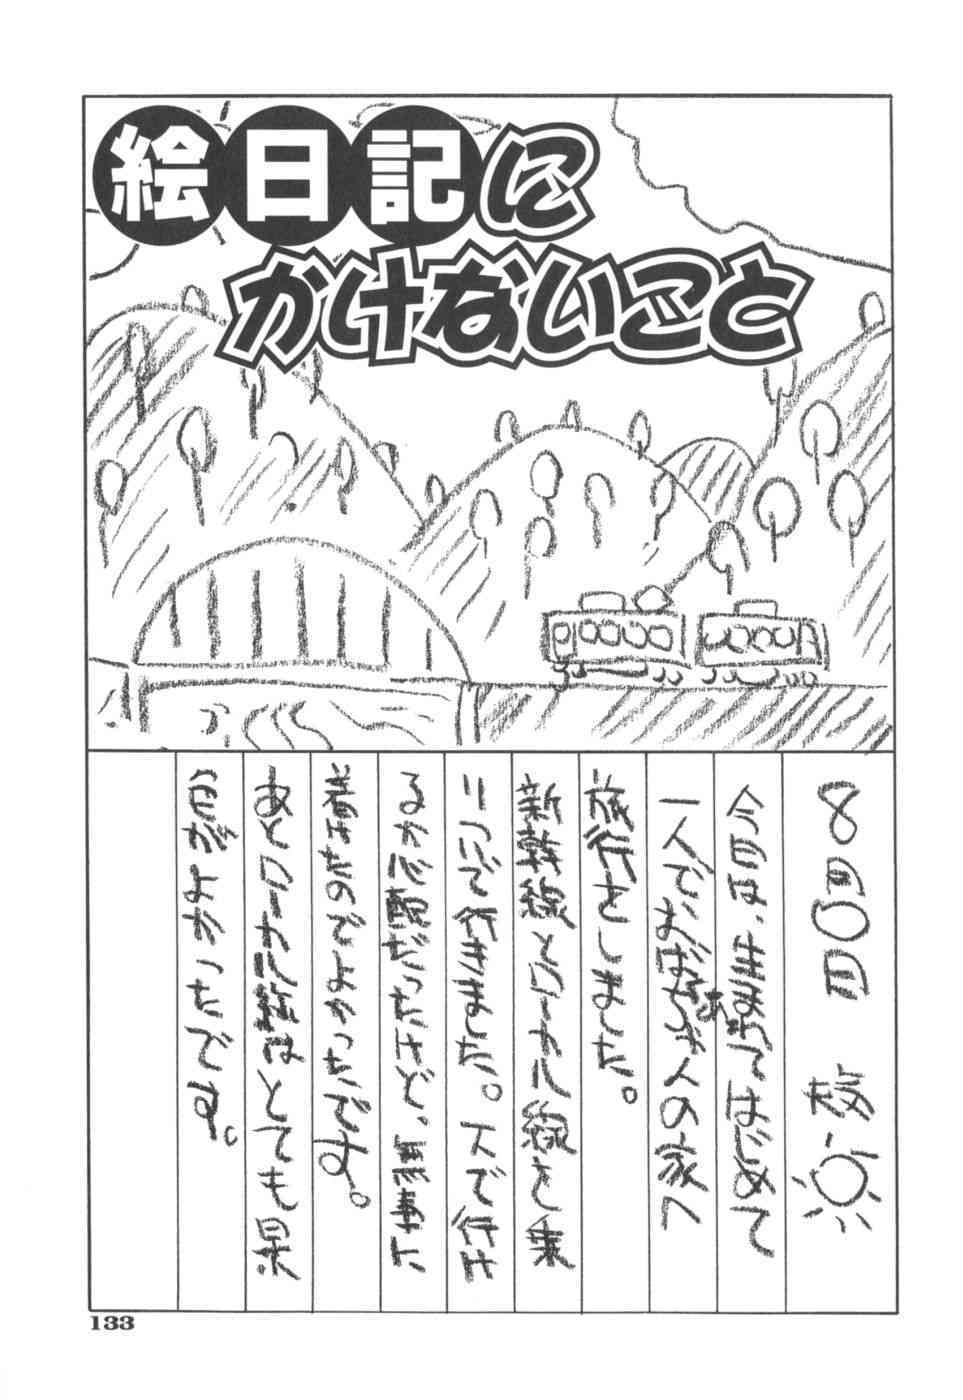 絵日記に
かけないこと
8月〇日
今日は、生まれてはじめて
一人で、おばあちゃんの家へ
旅行をしました。
新幹線とローカル線を乗
りついで行きました。一人で行け
るか心配だったけど、無事に
着けたのでよかったです。
あとローカル線はとても景
色がよかったです。
133